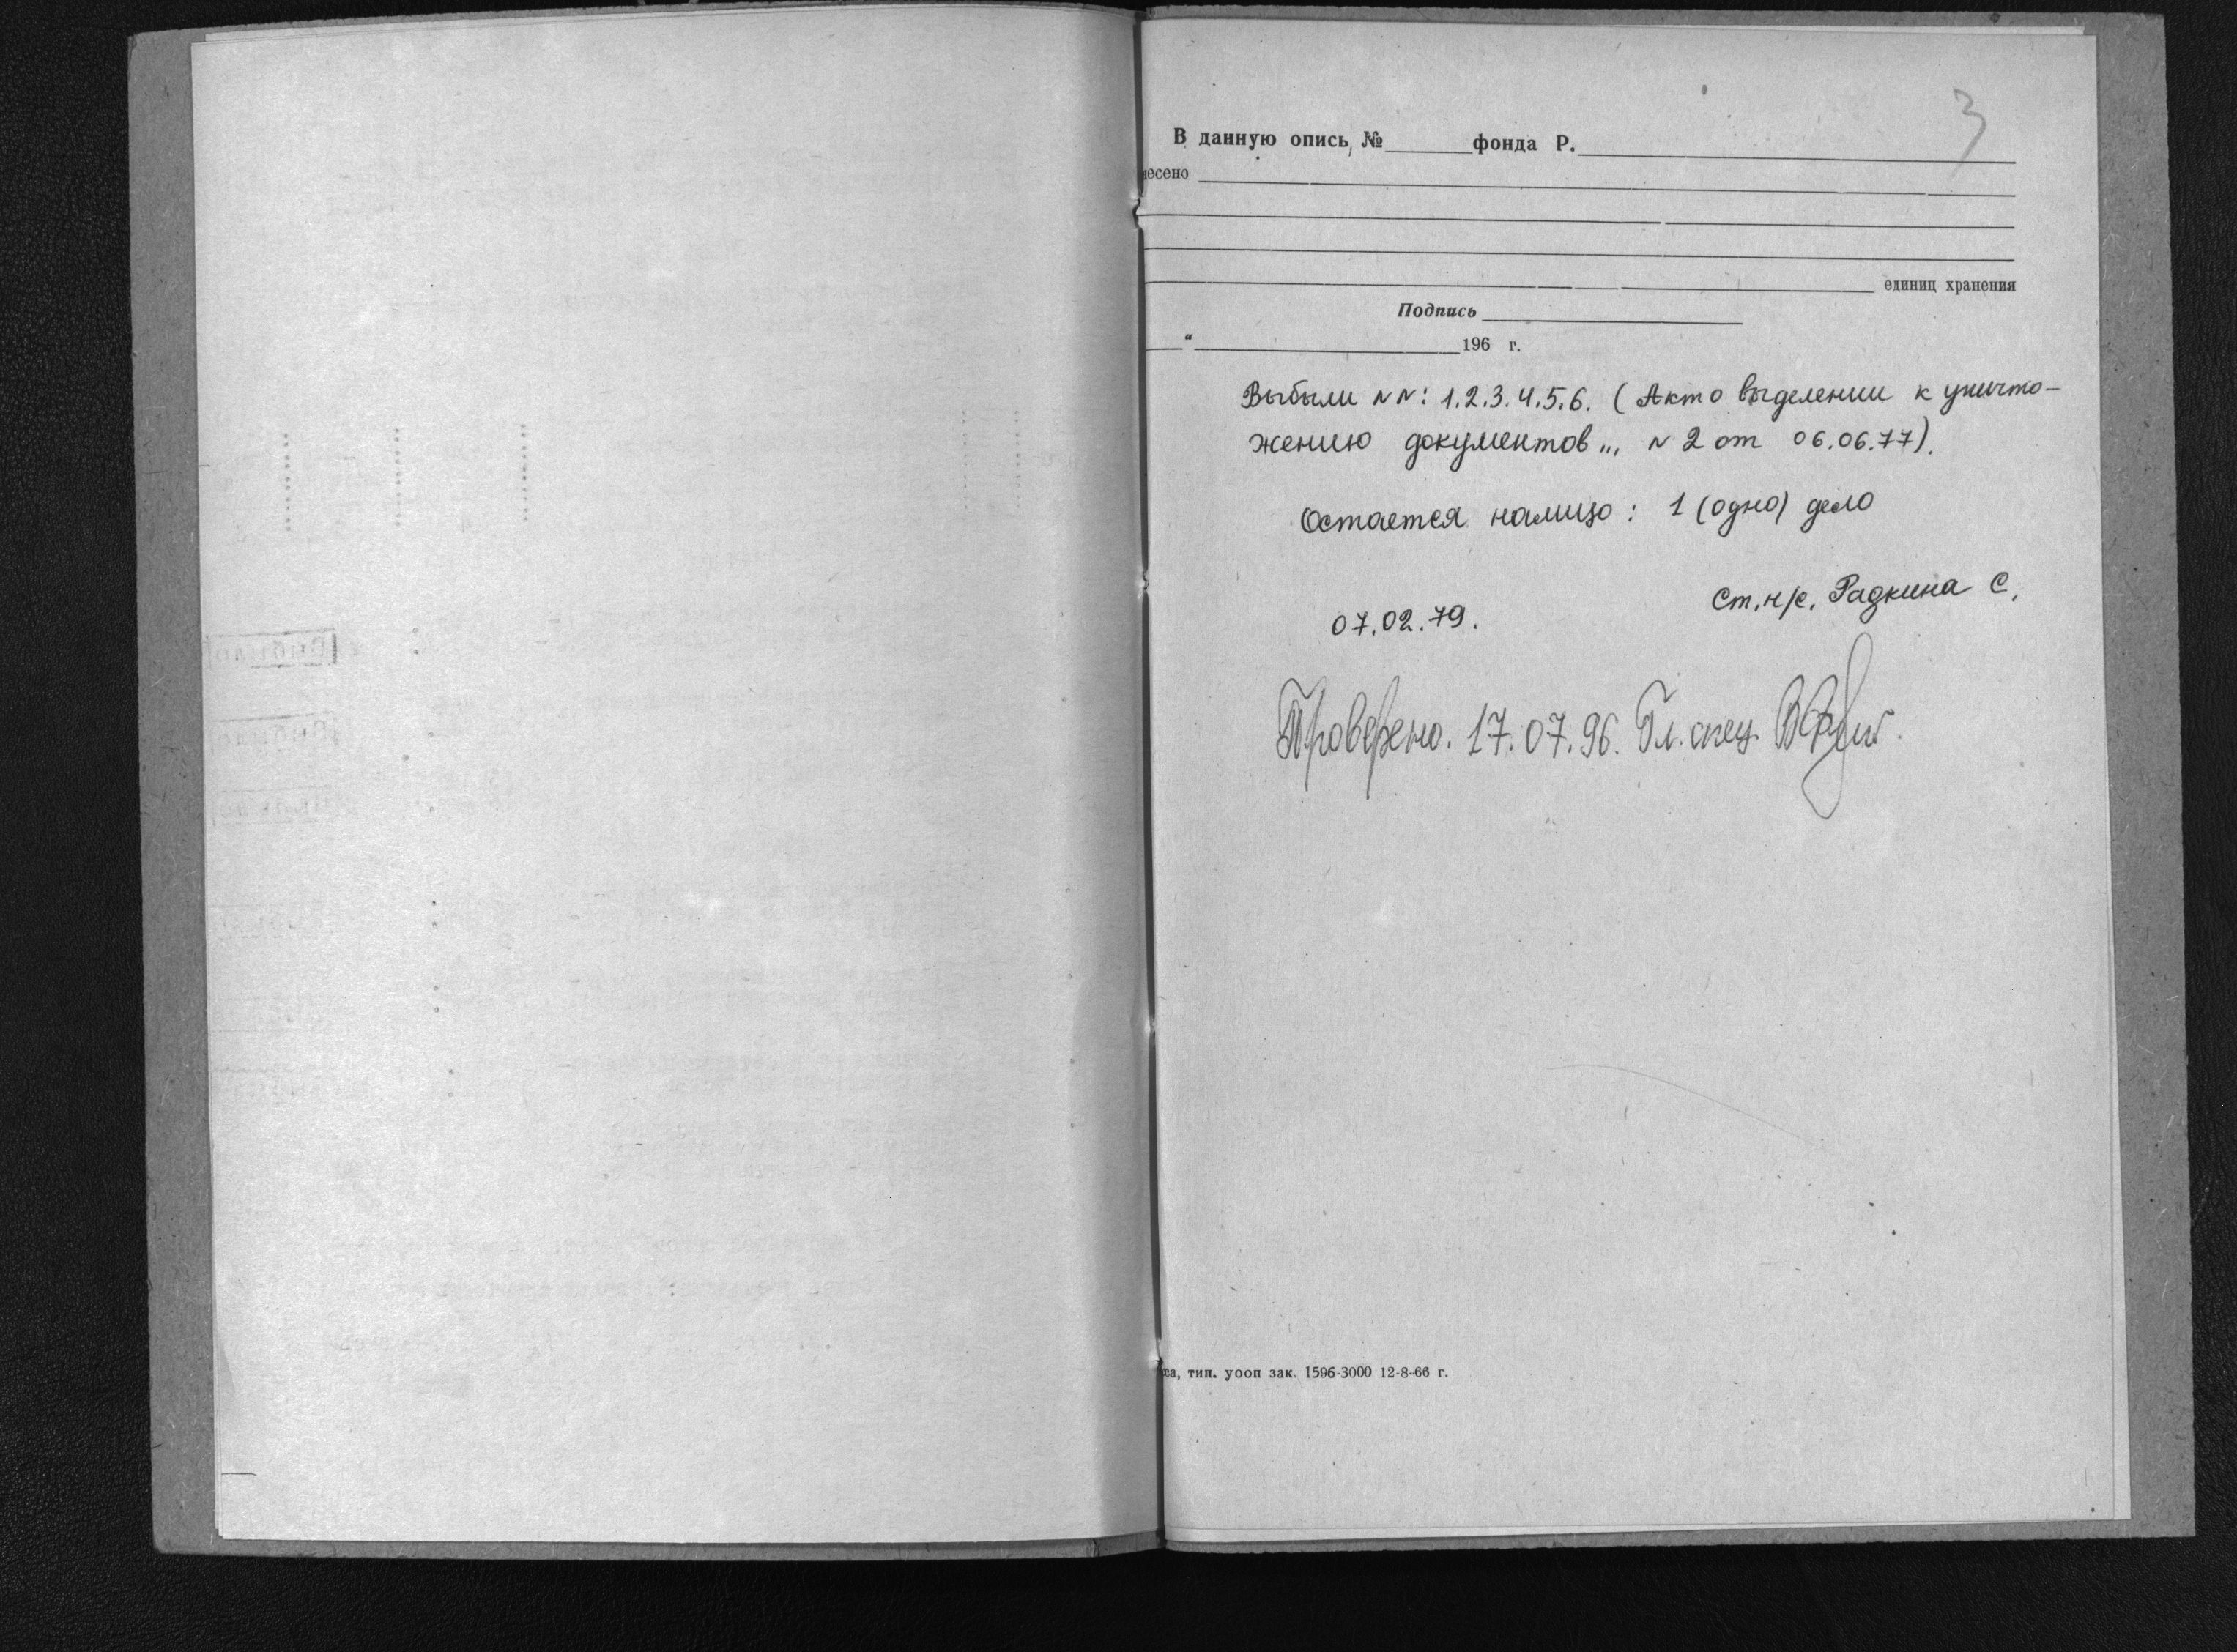 3
В данную опись, № фонда Р.
несено
единиц хранения
Подпись
“ 196 г.
Выбыли NN: 1.2.3.4.5.6. (Акт о выделении к уничто-
жению документов „, N 2 от 06.06.77).
Остается налицо: 1 (одно) дело
Ст. н/с. Радкина С.
07.02.79.
Проверено. 17.07.96. Гл. спец.
са, тип. уооп зак. 1596-3000 12-8-66 г.